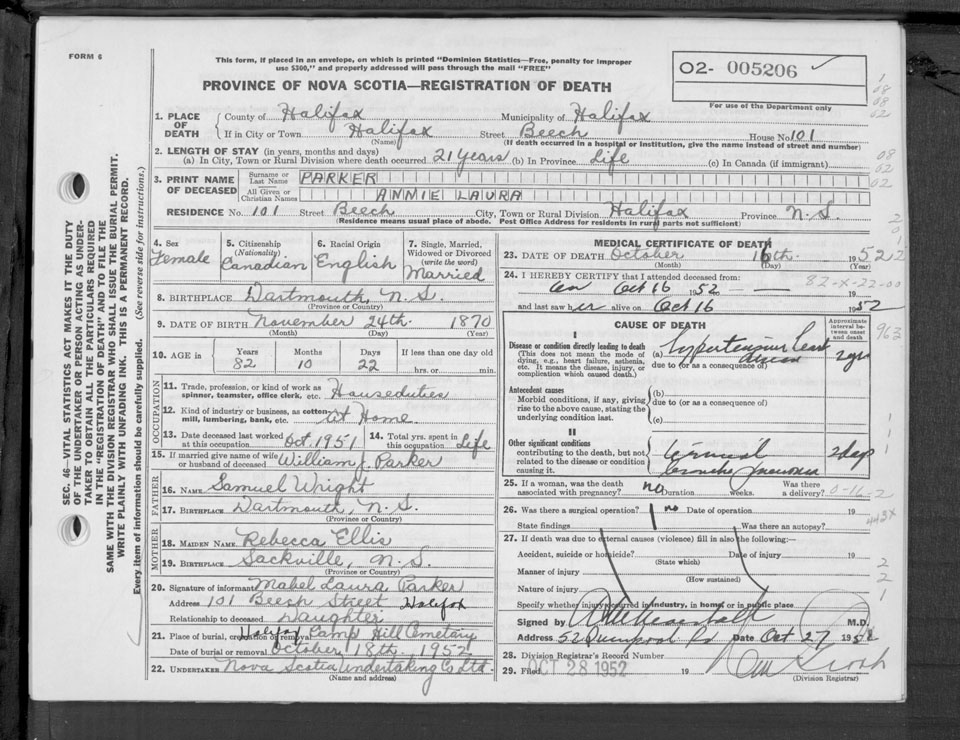 FORM 6
This form, if placed in an envelope, on which is printed "Dominion Statistics—Free, penalty for improper
use $300," and properly addressed will pass through the mail "FREE"
PROVINCE OF NOVA SCOTIA—REGISTRATION OF DEATH
O2- 005206
For use of the Department only
1. PLACE OF DEATH
County of Halifax Municipality of Halifax
If in City or Town Halifax Street Beech House No 101
(Name) (If death occurred in a hospital or institution, give the name instead of street and number)
2. LENGTH OF STAY (in years, months and days)
(a) In City, Town or Rural Division where death occurred 21 years (b) In Province Life (c) In Canada (if immigrant)
3. PRINT NAME OF DECEASED
Surname or Last Name PARKER
All Given or Christian Names ANNIE LAURA
RESIDENCE No. 101 Street Beech City, Town or Rural Division Halifax Province N.S.
(Residence means usual place of abode. Post Office Address for residents in rural parts not sufficient)
4. Sex Female
5. Citizenship (Nationality) Canadian
6. Racial Origin English
7. Single, Married, Widowed or Divorced (write the word) Married
8. BIRTHPLACE Dartmouth, N.S.
(Province or Country)
9. DATE OF BIRTH November 24th. 1870
(Month) (Day) (Year)
10. AGE in Years 82 Months 10 Days 22 If less than one day old hrs. or min.
OCCUPATION
11. Trade, profession, or kind of work as spinner, teamster, office clerk, etc. Houseduties
12. Kind of industry or business, as cotton-mill, lumbering, bank, etc. At Home
13. Date deceased last worked at this occupation Oct. 1951
14. Total yrs. spent in this occupation Life
15. If married give name of wife or husband of deceased William J. Parker
FATHER
16. NAME Samuel Wright
17. BIRTHPLACE Dartmouth, N.S.
(Province or Country)
MOTHER
18. MAIDEN NAME Rebecca Ellis
19. BIRTHPLACE Sackville, N.S.
(Province or Country)
20. Signature of informant Mabel Laura Parker
Address 101 Beech Street Halifax
Relationship to deceased Daughter
21. Place of burial, cremation or removal Halifax Camp Hill Cemetary
Date of burial or removal October 18th, 1952
22. UNDERTAKER Nova Scotia Undertaking Co Ltd.
(Name and address)
MEDICAL CERTIFICATE OF DEATH
23. DATE OF DEATH October 16th. 1952
(Month) (Day) (Year)
24. I HEREBY CERTIFY that I attended deceased from:
on Oct 16 1952 — — 19
82-X-22-00
and last saw her alive on Oct 16 1952
CAUSE OF DEATH
Approximate interval between onset and death
I
Disease or condition directly leading to death
(This does not mean the mode of dying, e.g., heart failure, asthenia, etc. It means the disease, injury, or complication which caused death.)
(a) Hypertensive heart disease 2 yrs
due to (or as a consequence of)
Antecedent causes
Morbid conditions, if any, giving rise to the above cause, stating the underlying condition last.
(b)
due to (or as a consequence of)
(c)
II
Other significant conditions
contributing to the death, but not related to the disease or condition causing it.
2 days
25. If a woman, was the death associated with pregnancy? no Duration weeks. Was there a delivery?
26. Was there a surgical operation? no Date of operation 19
State findings Was there an autopsy?
27. If death was due to external causes (violence) fill in also the following:—
Accident, suicide or homicide? Date of injury 19
(State which)
Manner of injury
(How sustained)
Nature of injury
Specify whether injury occurred in industry, in home, or in public place
Signed by M.D.
Address 52 Quinpool Rd Date Oct 27 1952
28. Division Registrar's Record Number
29. Filed OCT 28 1952 19
(Division Registrar)
SEC. 46—VITAL STATISTICS ACT MAKES IT THE DUTY
OF THE UNDERTAKER OR PERSON ACTING AS UNDER-
TAKER TO OBTAIN ALL THE PARTICULARS REQUIRED
IN THE "REGISTRATION OF DEATH" AND TO FILE THE
SAME WITH THE DIVISION REGISTRAR WHO SHALL ISSUE THE BURIAL PERMIT.
WRITE PLAINLY WITH UNFADING INK. THIS IS A PERMANENT RECORD.
Every item of information should be carefully supplied. (See reverse side for instructions.)